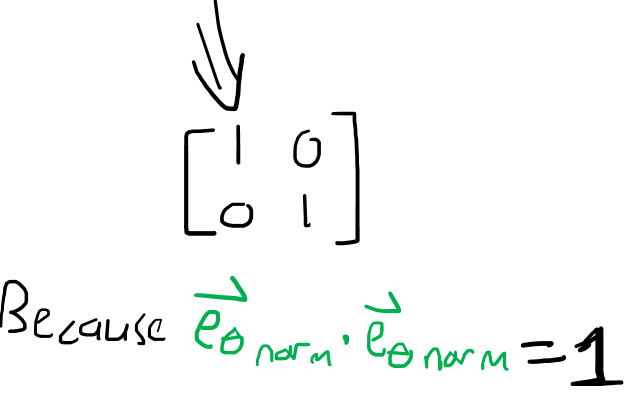 1 0
0 1
Because e⃗θ norm · e⃗θ norm = 1